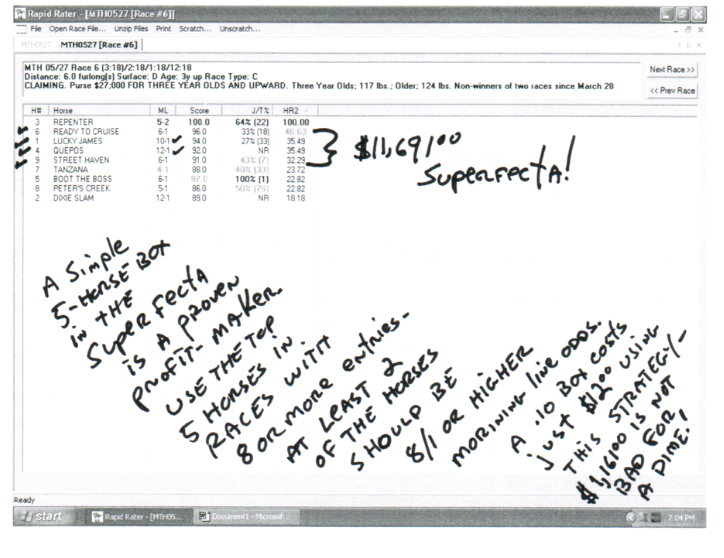 Rapid Rater - [MTH0527 [Race #6]]
File Open Race File... Unzip Files Print Scratch... Unscratch...
MTH0527 MTH0527 [Race #6]
MTH 05/27 Race 6 (3:18)/2:18/1:18/12:18
Distance: 6.0 furlong(s) Surface: D Age: 3y up Race Type: C
CLAIMING. Purse $27,000 FOR THREE YEAR OLDS AND UPWARD. Three Year Olds; 117 lbs.; Older; 124 lbs. Non-winners of two races since March 28
Next Race >>
<< Prev Race
H# Horse ML Score J/T% HR2
3 REPENTER 5-2 100.0 64% (22) 100.00
6 READY TO CRUISE 6-1 96.0 33% (18) 46.63
1 LUCKY JAMES 10-1 94.0 27% (33) 35.49
4 QUEPOS 12-1 92.0 NR 35.49
9 STREET HAVEN 6-1 91.0 43% (7) 32.29
7 TANZANA 4-1 88.0 48% (33) 23.72
5 BOOT THE BOSS 6-1 97.0 100% (1) 22.82
8 PETER'S CREEK 5-1 86.0 50% (75) 22.82
2 DIXIE SLAM 12-1 89.0 NR 18.18
$11,691.00
SUPERFECTA!
A Simple
5-HORSE BOX
in THE
SUPERFECTA
is A PROVEN
PROFIT-MAKER.
USE THE TOP
5 HORSES IN
RACES WITH
8 OR MORE entries-
AT LEAST 2
OF THE HORSES
SHOULD BE
8/1 OR HIGHER
MORINING line ODDS.
A .10 BOX COSTS
just $12.00 USING
THIS STRATEGY-
$1,161.00 IS NOT
BAD FOR
A DIME!
Ready
start Rapid Rater - [MTH05... Document1 - Microsof... 7:04 PM